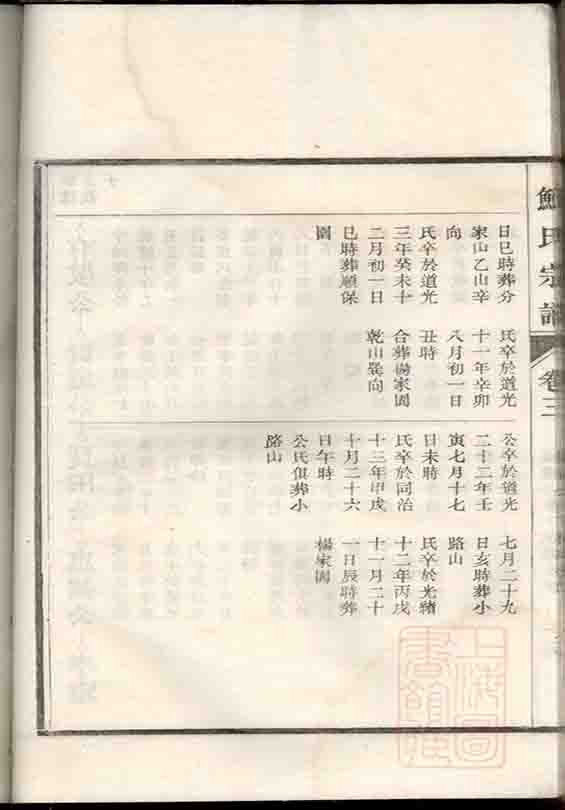 鮑氏宗譜
卷三
日巳時葬分
家山乙山辛
向
氏卒於道光
三年癸未十
二月初一日
巳時葬顧保
園
氏卒於道光
十一年辛卯
八月初一日
丑時
合葬楊家園
乾山巽向
公卒於道光
二十二年壬
寅七月十七
日未時
氏卒於同治
十三年甲戌
十月二十六
日午時
公氏俱葬小
路山
七月二十九
日亥時葬小
路山
氏卒於光緒
十二年丙戌
十一月二十
一日辰時葬
楊家園
上海圖書館藏